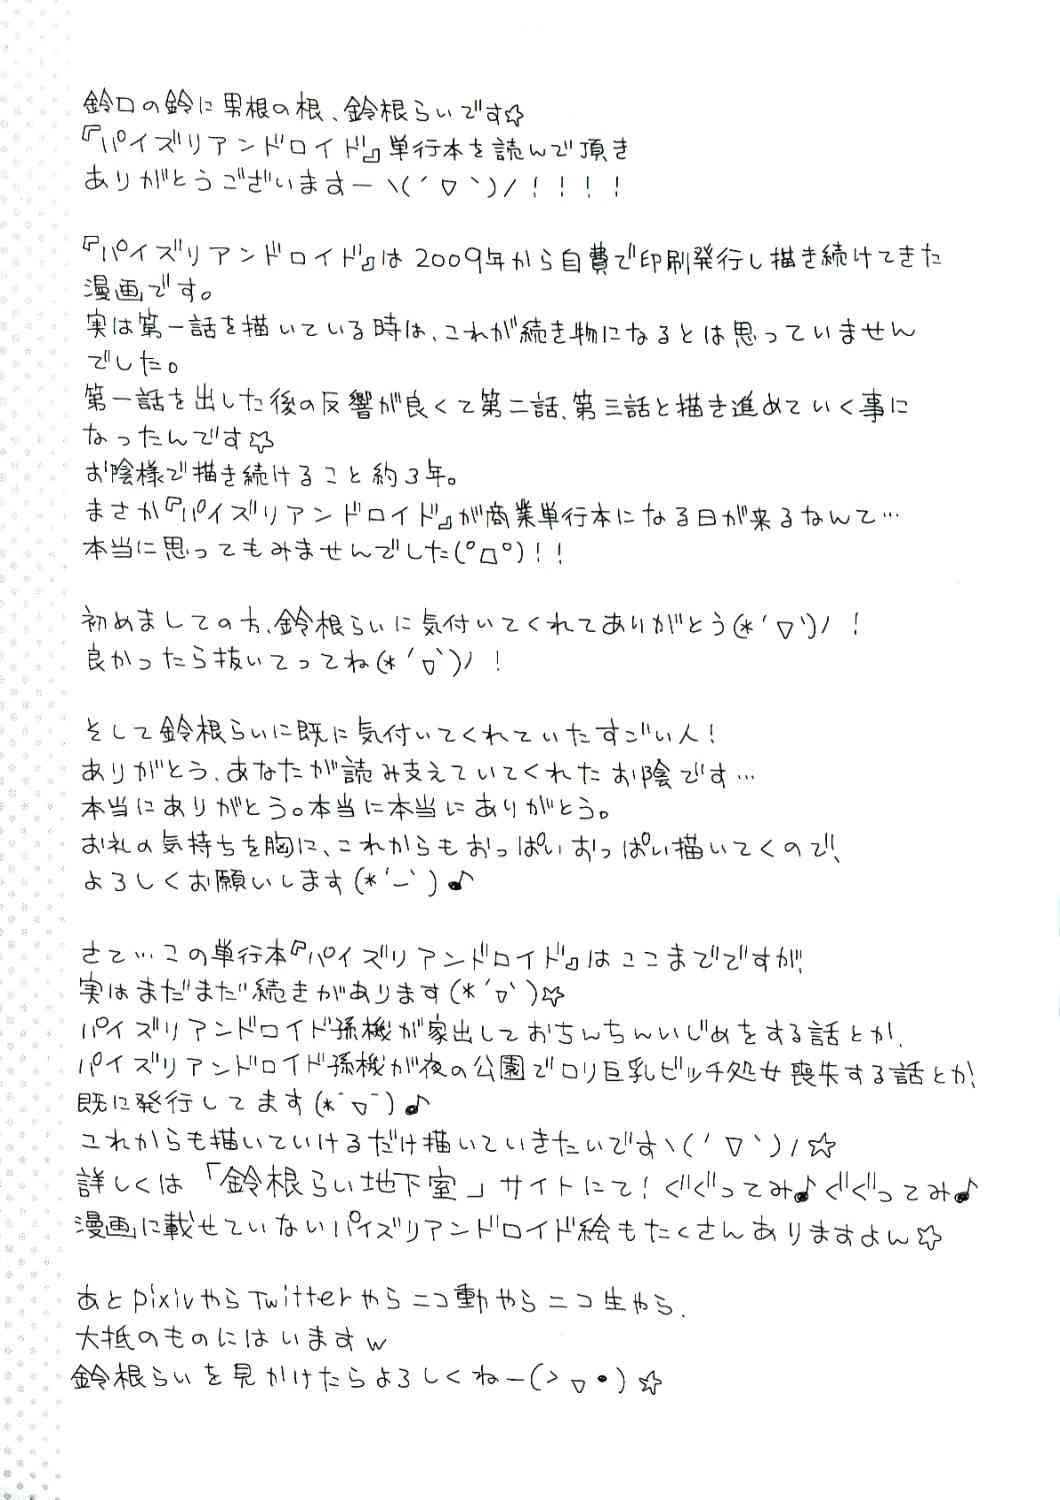 鈴口の鈴に男根の根、鈴根らいです☆
『パイズリアンドロイド』単行本を読んで頂き
ありがとうございますーヽ(´▽`)ﾉ！！！！
『パイズリアンドロイド』は2009年から自費で印刷発行し描き続けてきた
漫画です。
実は第一話を描いている時は、これが続き物になるとは思っていません
でした。
第一話を出した後の反響が良くて第二話、第三話と描き進めていく事に
なったんです☆
お陰様で描き続けること約3年。
まさか『パイズリアンドロイド』が商業単行本になる日が来るなんて…
本当に思ってもみませんでした(°□°)！！
初めましての方、鈴根らいに気付いてくれてありがとう(*´▽`)ﾉ！
良かったら抜いてってね(*´▽`)ﾉ！
そして鈴根らいに既に気付いてくれていたすごい人！
ありがとう、あなたが読み支えていてくれたお陰です…
本当にありがとう。本当に本当にありがとう。
お礼の気持ちを胸に、これからもおっぱいおっぱい描いてくので、
よろしくお願いします(*´–`)♪
さて…この単行本『パイズリアンドロイド』はここまでですが、
実はまだまだ続きがあります(*´▽`)☆
パイズリアンドロイド孫機が家出しておちんちんいじめをする話とか、
パイズリアンドロイド孫機が夜の公園でロリ巨乳ビッチ処女喪失する話とか、
既に発行してます(*´▽`)♪
これからも描いていけるだけ描いていきたいですヽ(´▽`)ﾉ☆
詳しくは「鈴根らい地下室」サイトにて！ぐぐってみ♪ぐぐってみ♪
漫画に載せていないパイズリアンドロイド絵もたくさんありますよん☆
あとpixivやらTwitterやらニコ動やらニコ生やら、
大抵のものにはいますw
鈴根らいを見かけたらよろしくねー(>▽•)☆